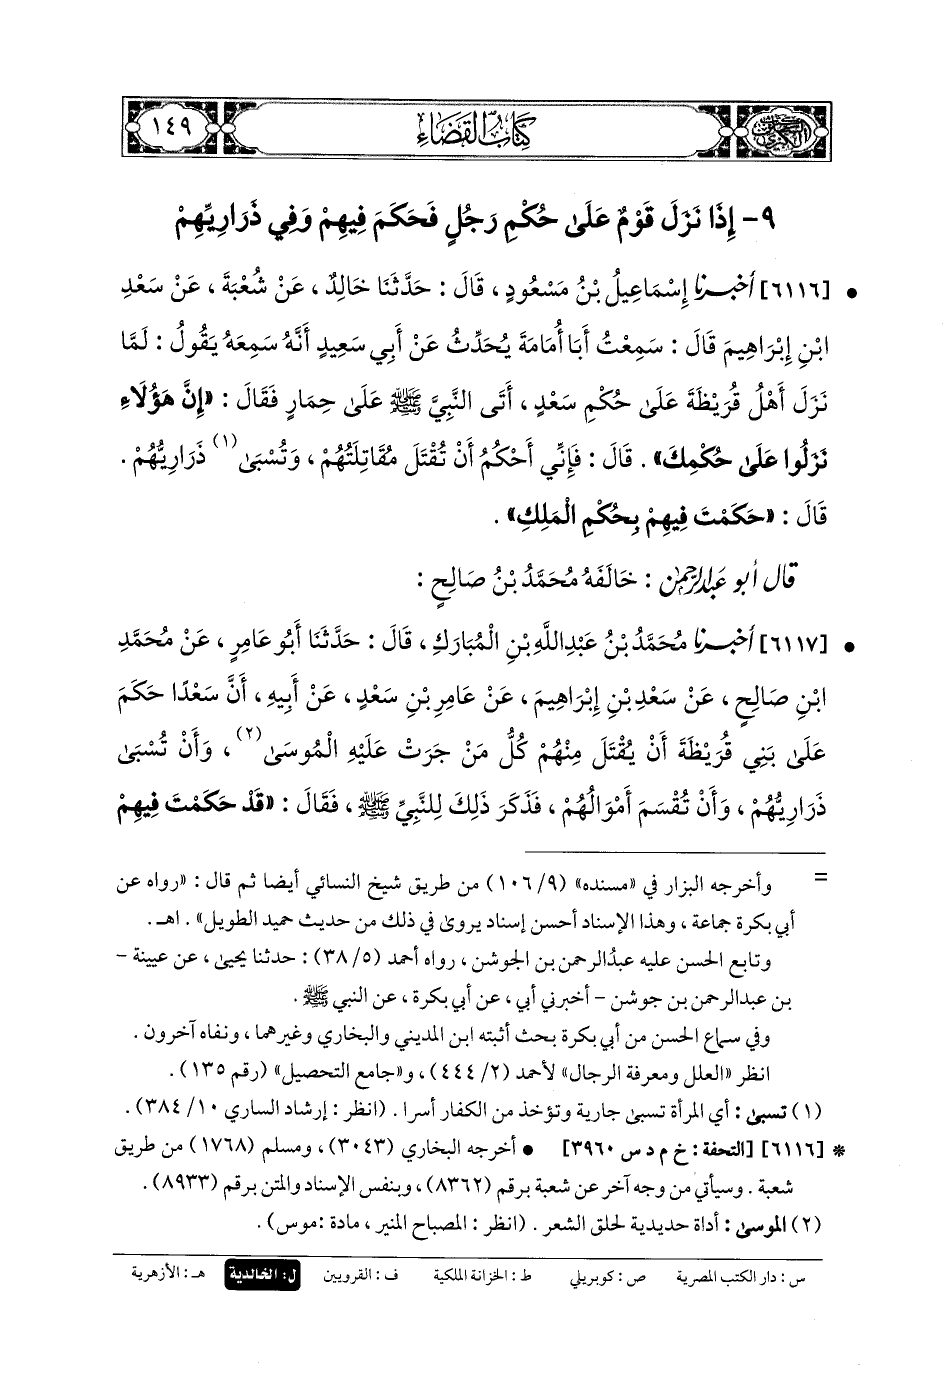 كِتَابُ القَضَاءِ
١٤٩
٩- إِذَا نَزَلَ قَوْمٌ عَلَىٰ حُكْمِ رَجُلٍ فَحَكَمَ فِيهِمْ وَفِي ذَرَارِيِّهِمْ
• [٦١١٦] أَخْبَرَنَا إِسْمَاعِيلُ بْنُ مَسْعُودٍ، قَالَ: حَدَّثَنَا خَالِدٌ، عَنْ شُعْبَةَ، عَنْ سَعْدِ
ابْنِ إِبْرَاهِيمَ قَالَ: سَمِعْتُ أَبَا أُمَامَةَ يُحَدِّثُ عَنْ أَبِي سَعِيدٍ أَنَّهُ سَمِعَهُ يَقُولُ: لَمَّا
نَزَلَ أَهْلُ قُرَيْظَةَ عَلَىٰ حُكْمِ سَعْدٍ، أَتَى النَّبِيَّ ﷺ عَلَىٰ حِمَارٍ فَقَالَ: «إِنَّ هَؤُلَاءِ
نَزَلُوا عَلَىٰ حُكْمِكَ». قَالَ: فَإِنِّي أَحْكُمُ أَنْ تُقْتَلَ مُقَاتِلَتُهُمْ، وَتُسْبَىٰ(١) ذَرَارِيُّهُمْ.
قَالَ: «حَكَمْتَ فِيهِمْ بِحُكْمِ الْمَلِكِ».
قال أبو عبدالرحمن: خَالَفَهُ مُحَمَّدُ بْنُ صَالِحٍ:
• [٦١١٧] أَخْبَرَنَا مُحَمَّدُ بْنُ عَبْدِاللَّهِ بْنِ الْمُبَارَكِ، قَالَ: حَدَّثَنَا أَبُو عَامِرٍ، عَنْ مُحَمَّدِ
ابْنِ صَالِحٍ، عَنْ سَعْدِ بْنِ إِبْرَاهِيمَ، عَنْ عَامِرِ بْنِ سَعْدٍ، عَنْ أَبِيهِ، أَنَّ سَعْدًا حَكَمَ
عَلَىٰ بَنِي قُرَيْظَةَ أَنْ يُقْتَلَ مِنْهُمْ كُلُّ مَنْ جَرَتْ عَلَيْهِ الْمُوسَىٰ(٢)، وَأَنْ تُسْبَىٰ
ذَرَارِيُّهُمْ، وَأَنْ تُقْسَمَ أَمْوَالُهُمْ، فَذَكَرَ ذَلِكَ لِلنَّبِيِّ ﷺ، فَقَالَ: «قَدْ حَكَمْتَ فِيهِمْ
= وأخرجه البزار في «مسنده» (٩/ ١٠٦) من طريق شيخ النسائي أيضا ثم قال: «رواه عن
أبي بكرة جماعة، وهذا الإسناد أحسن إسناد يروىٰ في ذلك من حديث حميد الطويل». اهـ.
وتابع الحسن عليه عبدُالرحمن بن الجوشن، رواه أحمد (٥/ ٣٨): حدثنا يحيىٰ، عن عيينة -
بن عبدالرحمن بن جوشن - أخبرني أبي، عن أبي بكرة، عن النبي ﷺ.
وفي سماع الحسن من أبي بكرة بحث أثبته ابن المديني والبخاري وغيرهما، ونفاه آخرون.
انظر «العلل ومعرفة الرجال» لأحمد (٢/ ٤٤٤)، و«جامع التحصيل» (رقم ١٣٥).
(١) تسبىٰ: أي المرأة تسبىٰ جارية وتؤخذ من الكفار أسرا. (انظر: إرشاد الساري ١٠/ ٣٨٤).
* [٦١١٦] [التحفة: خ م د س ٣٩٦٠] • أخرجه البخاري (٣٠٤٣)، ومسلم (١٧٦٨) من طريق
شعبة. وسيأتي من وجه آخر عن شعبة برقم (٨٣٦٢)، وبنفس الإسناد والمتن برقم (٨٩٣٣).
(٢) الموسىٰ: أداة حديدية لحلق الشعر. (انظر: المصباح المنير، مادة:موس).
س: دار الكتب المصرية ص: كوبريلي ط: الخزانة الملكية ف: القرويين ل: الخالدية هـ: الأزهرية